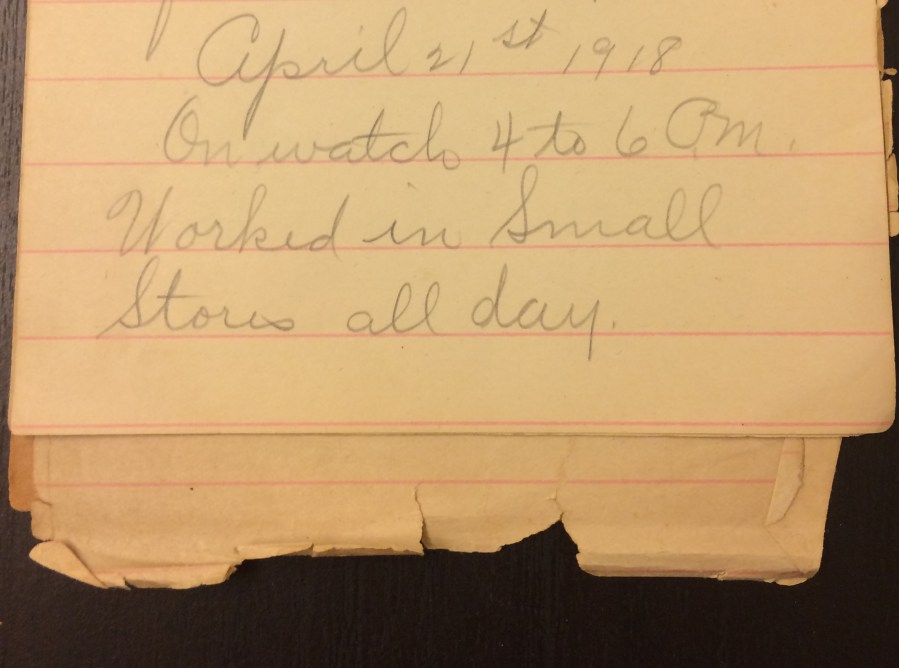 April 21st 1918
On watch 4 to 6 P.m.
Worked in Small
Stores all day.